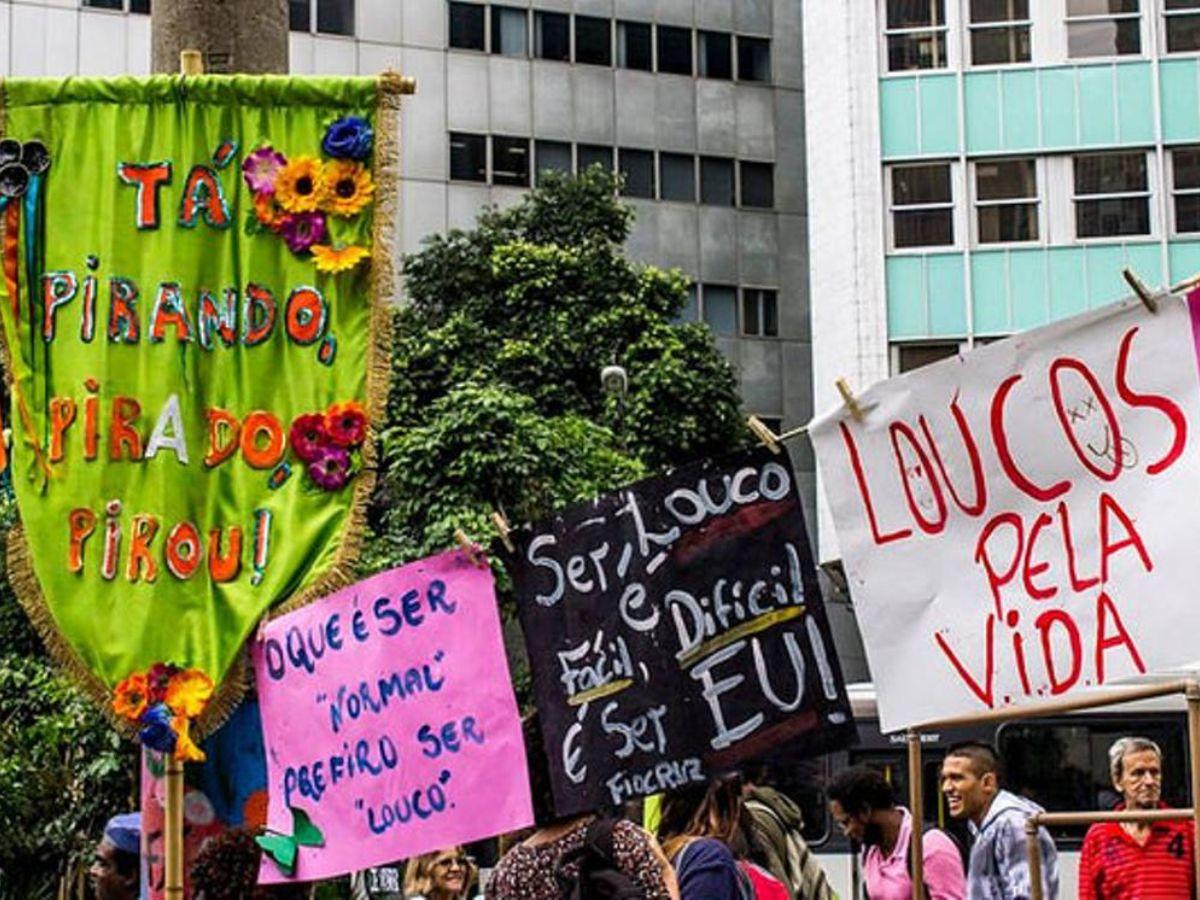 TÁ
PIRANDO,
PIRADO,
PIROU!
O QUE É SER
"NORMAL"
PREFIRO SER
"LOUCO".
Ser, Louco
e
Fácil, Difícil
é Ser EU!
FIOCRUZ
LOUCOS
PELA
V.I.D.A